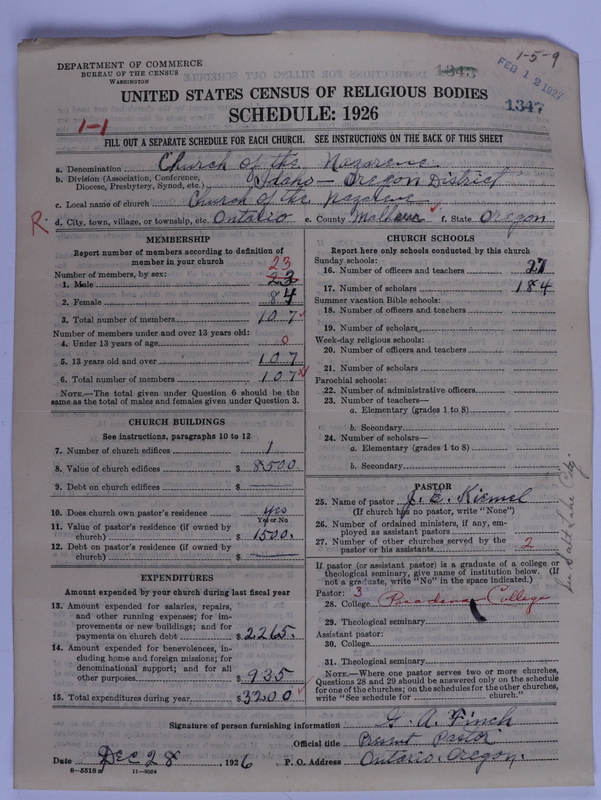 1-5-9
DEPARTMENT OF COMMERCE
BUREAU OF THE CENSUS
WASHINGTON
1345
FEB 12 1927
UNITED STATES CENSUS OF RELIGIOUS BODIES
1347
SCHEDULE: 1926
1-1
FILL OUT A SEPARATE SCHEDULE FOR EACH CHURCH. SEE INSTRUCTIONS ON THE BACK OF THIS SHEET
a. Denomination Church of the Nazarene
b. Division (Association, Conference, Diocese, Presbytery, Synod, etc.) Idaho - Oregon District
c. Local name of church Church of the Nazarene
R. d. City, town, village, or township, etc. Ontario e. County Malheur f. State Oregon
MEMBERSHIP
Report number of members according to definition of member in your church
23
Number of members, by sex:
1. Male 23
2. Female 84
3. Total number of members 107
Number of members under and over 13 years old:
4. Under 13 years of age 0
5. 13 years old and over 107
6. Total number of members 107
NOTE.—The total given under Question 6 should be
same as the total of males and females given under Question 3.
CHURCH BUILDINGS
See instructions, paragraphs 10 to 12
7. Number of church edifices 1
8. Value of church edifices $ 8500
9. Debt on church edifices $
10. Does church own pastor's residence yes
Yes or No
11. Value of pastor's residence (if owned by
church) $ 1500.
12. Debt on pastor's residence (if owned by
church) $
EXPENDITURES
Amount expended by your church during last fiscal year
13. Amount expended for salaries, repairs,
and other running expenses; for im-
provements or new buildings; and for
payments on church debt $ 2265.
14. Amount expended for benevolences, in-
cluding home and foreign missions; for
denominational support; and for all
other purposes $ 935
15. Total expenditures during year $ 3200
CHURCH SCHOOLS
Report here only schools conducted by this church
Sunday schools:
16. Number of officers and teachers 27
17. Number of scholars 184
Summer vacation Bible schools:
18. Number of officers and teachers
19. Number of scholars
Week-day religious schools:
20. Number of officers and teachers
21. Number of scholars
Parochial schools:
22. Number of administrative officers
23. Number of teachers—
a. Elementary (grades 1 to 8)
b. Secondary
24. Number of scholars—
a. Elementary (grades 1 to 8)
b. Secondary
PASTOR
25. Name of pastor J. E. Kiemel
(If church has no pastor, write "None")
26. Number of ordained ministers, if any, em-
ployed as assistant pastors
27. Number of other churches served by the
pastor or his assistants 2
If pastor (or assistant pastor) is a graduate of a college or
theological seminary, give name of institution below. (If
not a graduate, write "No" in the space indicated.)
Pastor: 3
28. College Pasadena College
29. Theological seminary
Assistant pastor:
30. College
31. Theological seminary
NOTE.—Where one pastor serves two or more churches,
Questions 28 and 29 should be answered only on the schedule
for one of the churches; on the schedules for the other churches,
write "See schedule for church."
See Salt Lake City
Signature of person furnishing information G. A. Finch
Official title Present Pastor
Date Dec 28, 1926 P. O. Address Ontario, Oregon.
8-5518a 11-9054